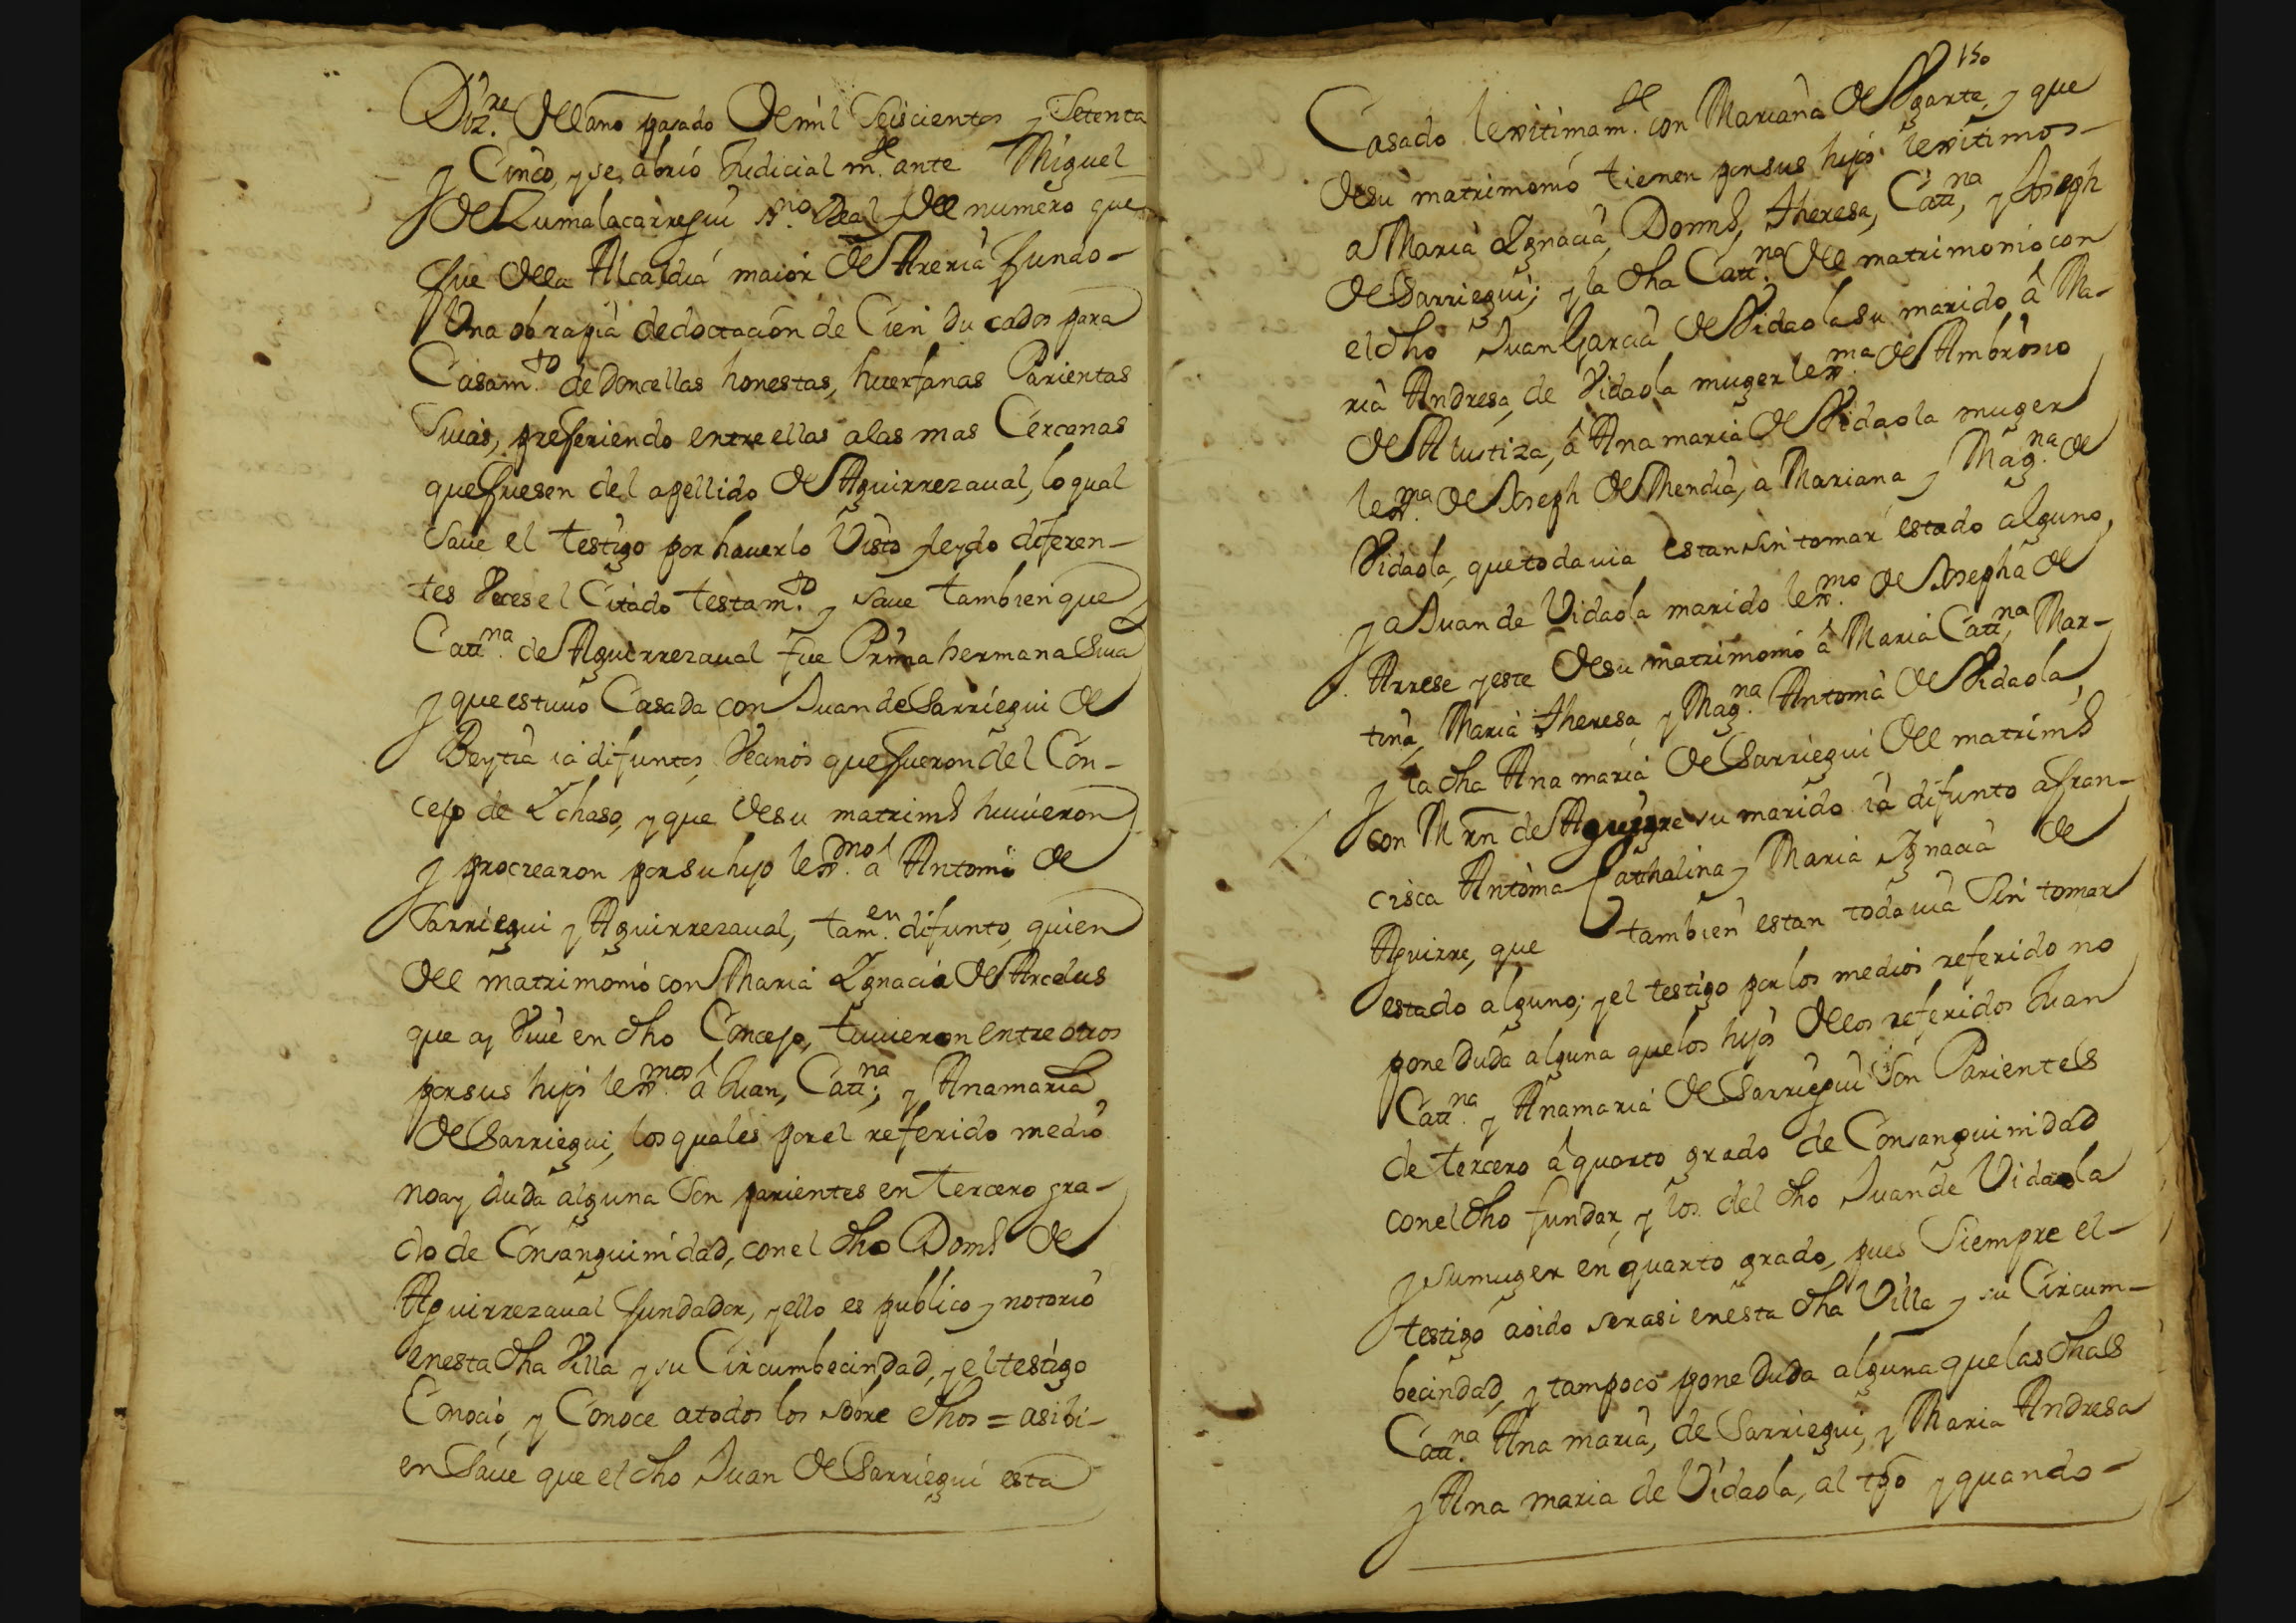 Dizre. del año pasado de mil Seiscientos y Setenta
y Cinco, y se abrió Judicialmte. ante Miguel
de Zumalacarregui sno. Real y del numero que
fue de la Alcaldia maior de Areria fundo-
Una obra pia de doctación de Cien Ducados para
Casamto. de Doncellas honestas, huerfanas Parientas
Suias, prefseriendo entre ellas alas mas Cercanas
que fuesen del apellido de Aguirrezaual, lo qual
Saue el testigo por hauerlo Visto y leydo diferen-
tes Veces el Citado testamto. y Saue tambien que
Catna. de Aguirrezaual fue Prima hermana Suia
y que estuuo Casada con Juan de Sarriegui de
Beytia ia difuntos Vecinos que fueron del Con-
cejo de Ychaso, y que de su matrimo huuieron
y procrearon por su hijo lexmo. â Antonio de
Sarriegui y Aguirrezaual, tamen. difunto, quien
del matrimonio con Maria Ygnacia de Arcelus
que oy Viue en dho Concejo, tuuieron entre otros
por sus hijos lexmos. â Juan, Catna; y Anamaria
de Sarriegui, los quales por el referido medio
no ay duda alguna Son parientes en tercero gra-
do de Consanguinidad, con el dho Domo de
Aguirrezaual fundador, y ello es publico y notorio
en esta dha Villa y su Circumbecindad, y el testigo
Conoció, y Conoce atodos los sobre dhos = asi bi-
en Saue que el dho Juan de Sarriegui esta
150
Casado lexitimamte. con Mariana de Ugarte, y que
de su matrimonio tienen por sus hijos lexitimos-
a Maria Ygnacia, Domo, theresa, Catna, y Joseph
de Sarriegui; y la dha Catna. del matrimonio con
el dho Juan Garcia de Vidaola su marido â Ma-
ria Andresa, de Vidaola muger lexma. de Ambrosio
de Alustiza, â Ana maria de Vidaola muger
lexma. de Joseph de Mendia, a Mariana y Magna. de
Vidaola, que todauia estan sin tomar estado alguno,
y a Juan de Vidaola marido lexmo. de Josepha de
Arrese y este de su matrimonio â Maria Catna, Mar-
tina, Maria theresa y Magna. Antonia de Vidaola
y la dha Ana maria de Sarriegui del matrimo
con Mrn de Aguirre su marido iâ difunto a fran-
cisca Antonia Cathalina y Maria Ygnacia de
Aguirre, que tambien estan todauia Sin tomar
estado alguno; y el testigo por los medios referido no
pone Duda alguna que los hijos de los referidos Juan
Catna. y Anamaria de Sarriegui Son Parientes
de tercero â quarto grado de Consanguinidad
con el dho fundar, y los del dho Juan de Vidaola
y su muger en quarto grado, pues Siempre el-
testigo aoido ser asi en esta dha Villa y su Circum-
becindad, y tampoco pone duda alguna que las dhas
Catna. Ana maria, de Sarriegui, y Maria Andresa
y Ana maria de Vidaola, al tpo y quando-